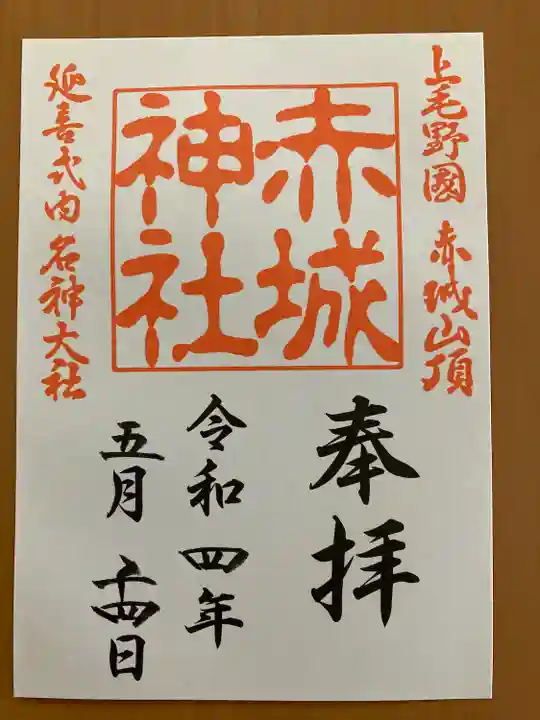 上毛野國 赤城山頂
赤城
神社
延喜式内 名神大社
奉拝
令和四年
五月二十四日